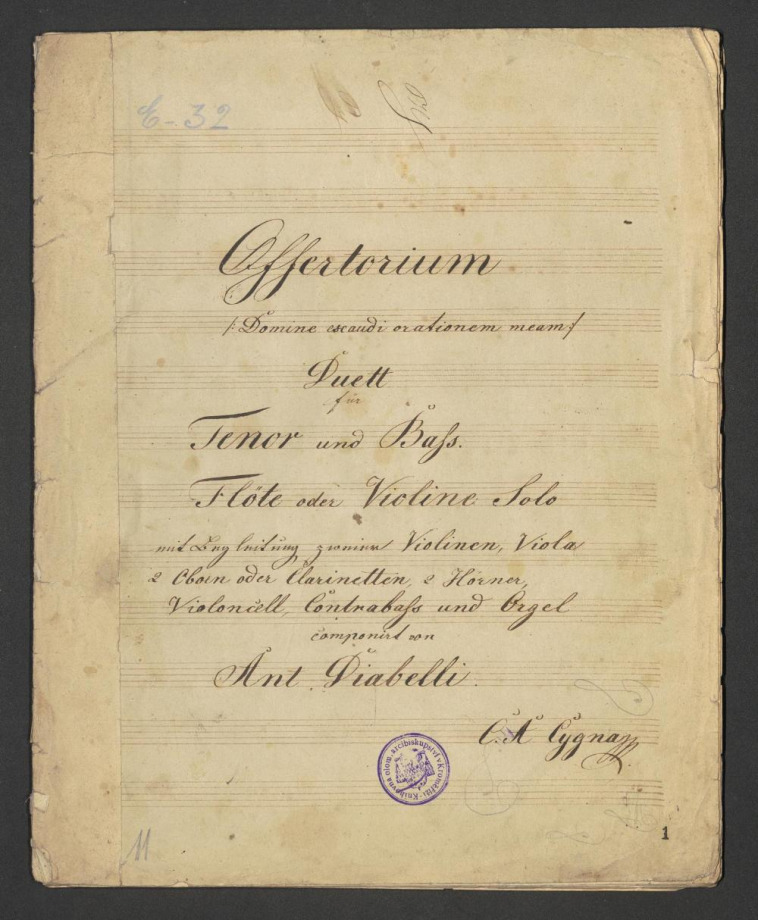 E-32
Offertorium
/: Domine exaudi orationem meam :/
Duett
für
Tenor und Bass.
Flöte oder Violine Solo
mit Begleitung zweier Violinen, Viola
2 Oboen oder Clarinetten, 2 Hörner,
Violoncell, Contrabass und Orgel
componirt von
Ant. Diabelli.
Knihovna olom. arcibiskupství v Kroměříži
11
1